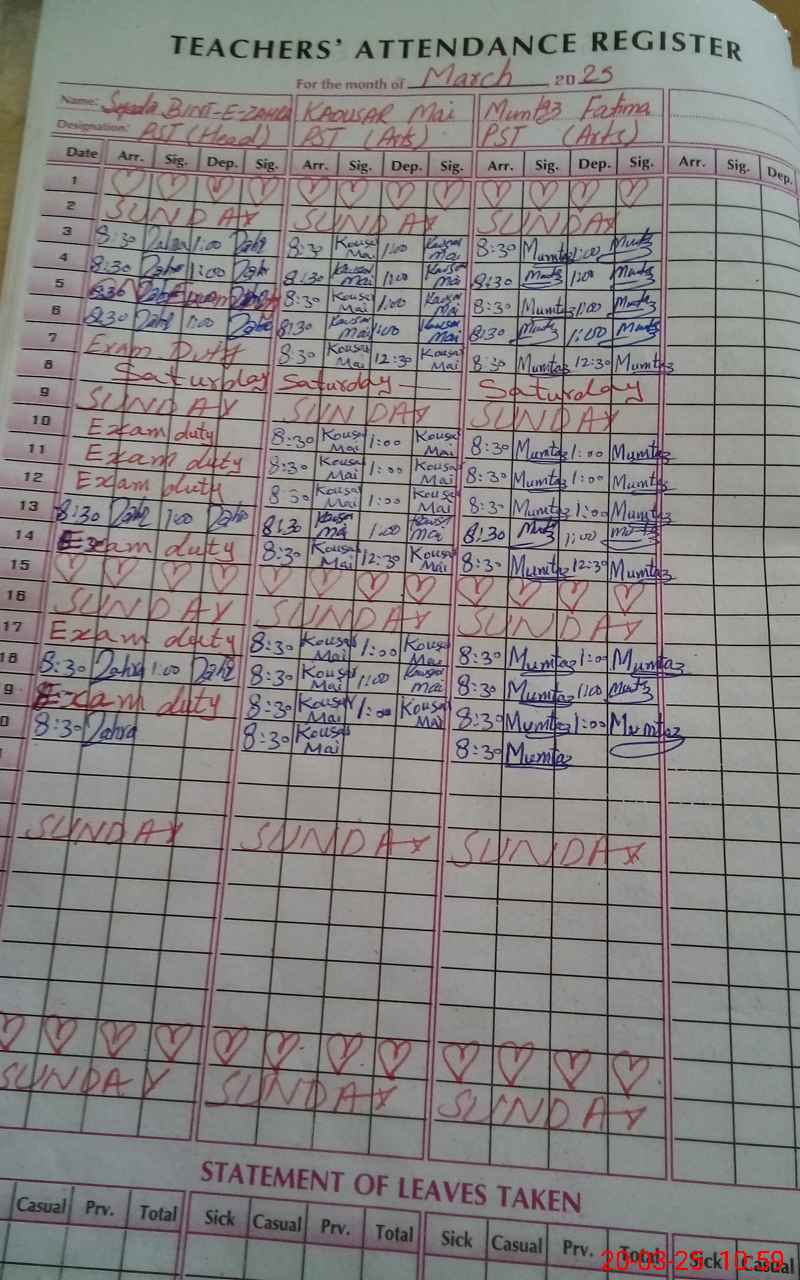 TEACHERS' ATTENDANCE REGISTER
For the month of March 2025
Name: Syeda BINT-E-ZAHRA KAOUSAR Mai Mumtaz Fatima
Designation: PST (Head) PST (Arts) PST (Arts)
Date Arr. Sig. Dep. Sig. Arr. Sig. Dep. Sig. Arr. Sig. Dep. Sig. Arr. Sig. Dep.
1
2 SUNDAY SUNDAY SUNDAY
3 8:30 Zahra 1:00 Zahr 8:30 Kousar Mai 1:00 Kausar Mai 8:30 Mumtaz 1:00 Mumtaz
4 8:30 Zahr 1:00 Zahr 8:30 Kausar Mai 1:00 Kausar Mai 8:30 Mumtz 1:00 Mumtz
5 8:30 8:30 Kousar Mai 1:00 Kausar Mai 8:30 Mumtaz 1:00 Mumtaz
6 8:30 Zahr 1:00 Zahr 8:30 Kausar Mai 1:00 Kausar Mai 8:30 Mumtz 1:00 Mumtz
7 Exam Duty 8:30 Kousar Mai 12:30 Kousar Mai 8:30 Mumtaz 12:30 Mumtaz
8 Saturday Saturday Saturday
9 SUNDAY SUNDAY SUNDAY
10 Exam duty 8:30 Kousar Mai 1:00 Kousar Mai 8:30 Mumtaz 1:00 Mumtaz
11 Exam duty 8:30 Kousar Mai 1:00 Kousar Mai 8:30 Mumtaz 1:00 Mumtaz
12 Exam duty 8:30 Kousar Mai 1:00 Kousar Mai 8:30 Mumtaz 1:00 Mumtaz
13 8:30 Zahr 1:00 Zahr 8:30 Kausar Mai 1:00 Kausar Mai 8:30 Mumtz 1:00 Mumtz
14 Exam duty 8:30 Kousar Mai 12:30 Kousar Mai 8:30 Mumtaz 12:30 Mumtaz
15
16 SUNDAY SUNDAY SUNDAY
17 Exam duty 8:30 Kousar Mai 1:00 Kousar Mai 8:30 Mumtaz 1:00 Mumtaz
18 8:30 Zahra 1:00 Zahr 8:30 Kousar Mai 1:00 Kausar Mai 8:30 Mumtaz 1:00 Mumtz
9 Exam duty 8:30 Kousar Mai 1:00 Kousar Mai 8:30 Mumtaz 1:00 Mumtaz
0 8:30 Zahra 8:30 Kousar Mai 8:30 Mumtaz
SUNDAY SUNDAY SUNDAY
SUNDAY SUNDAY SUNDAY
STATEMENT OF LEAVES TAKEN
Casual Prv. Total Sick Casual Prv. Total Sick Casual Prv. Total Sick Casual
20-03-25 10:59